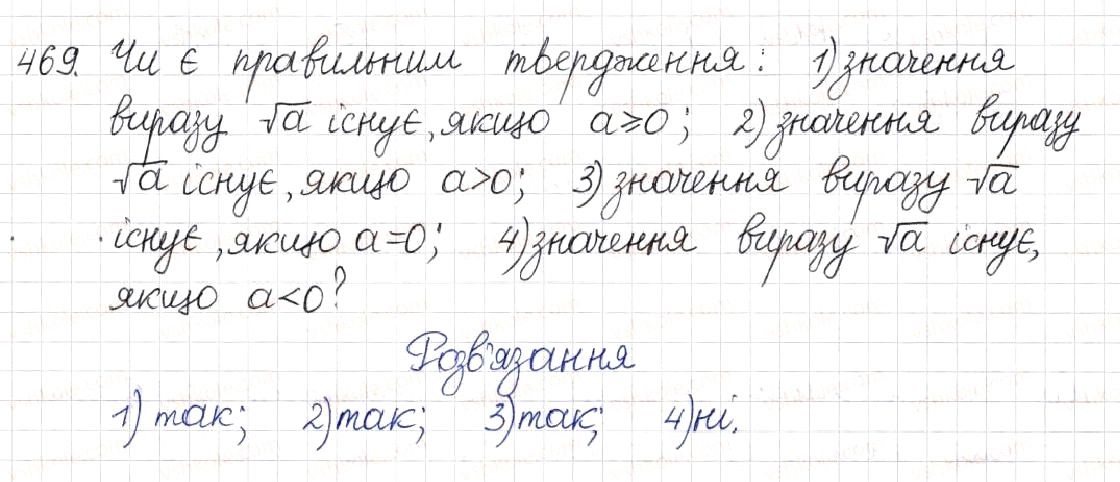 469. Чи є правильним твердження: 1) значення
виразу √a існує, якщо a≥0; 2) значення виразу
√a існує, якщо a>0; 3) значення виразу √a
існує, якщо a=0; 4) значення виразу √a існує,
якщо a<0?
Розв'язання
1) так; 2) так; 3) так; 4) ні.